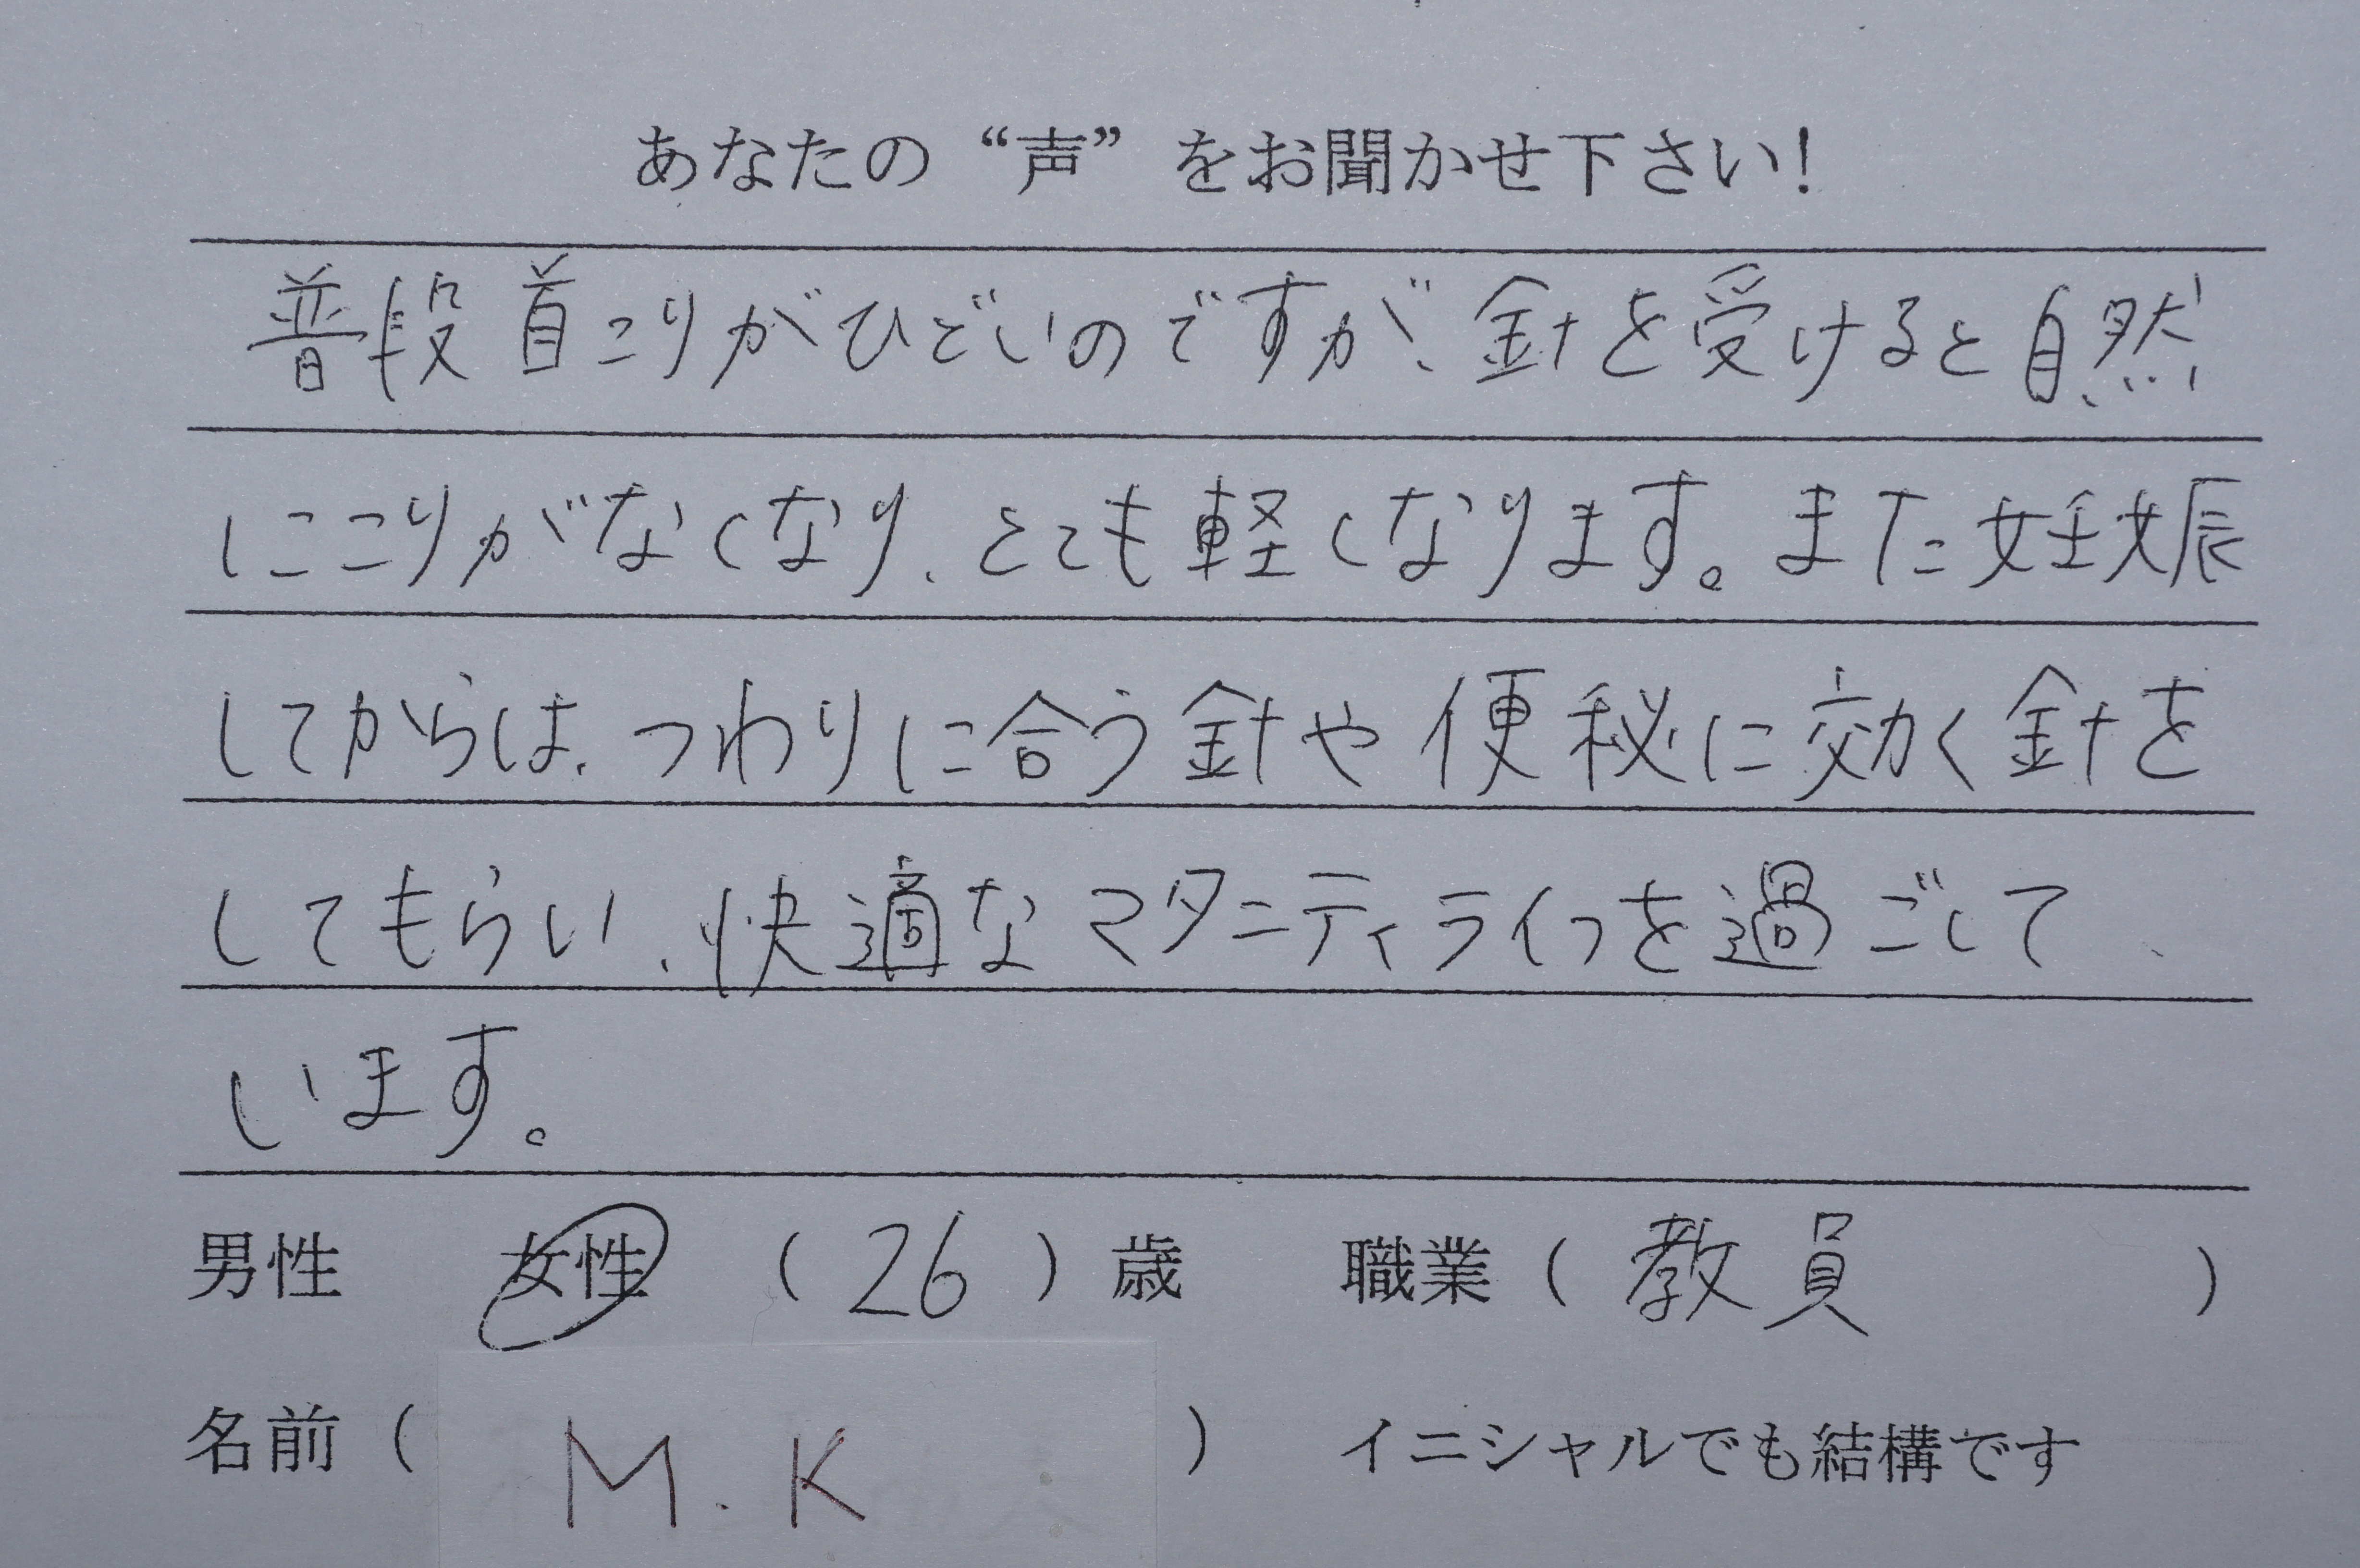 あなたの“声”をお聞かせ下さい！
普段首こりがひどいのですが、針を受けると自然
にこりがなくなり、とても軽くなります。また妊娠
してからは、つわりに合う針や便秘に効く針を
してもらい、快適なマタニティライフを過ごして
います。
男性　女性　（ 26 ）歳　職業（ 教員　）
名前（ M.K ）　イニシャルでも結構です